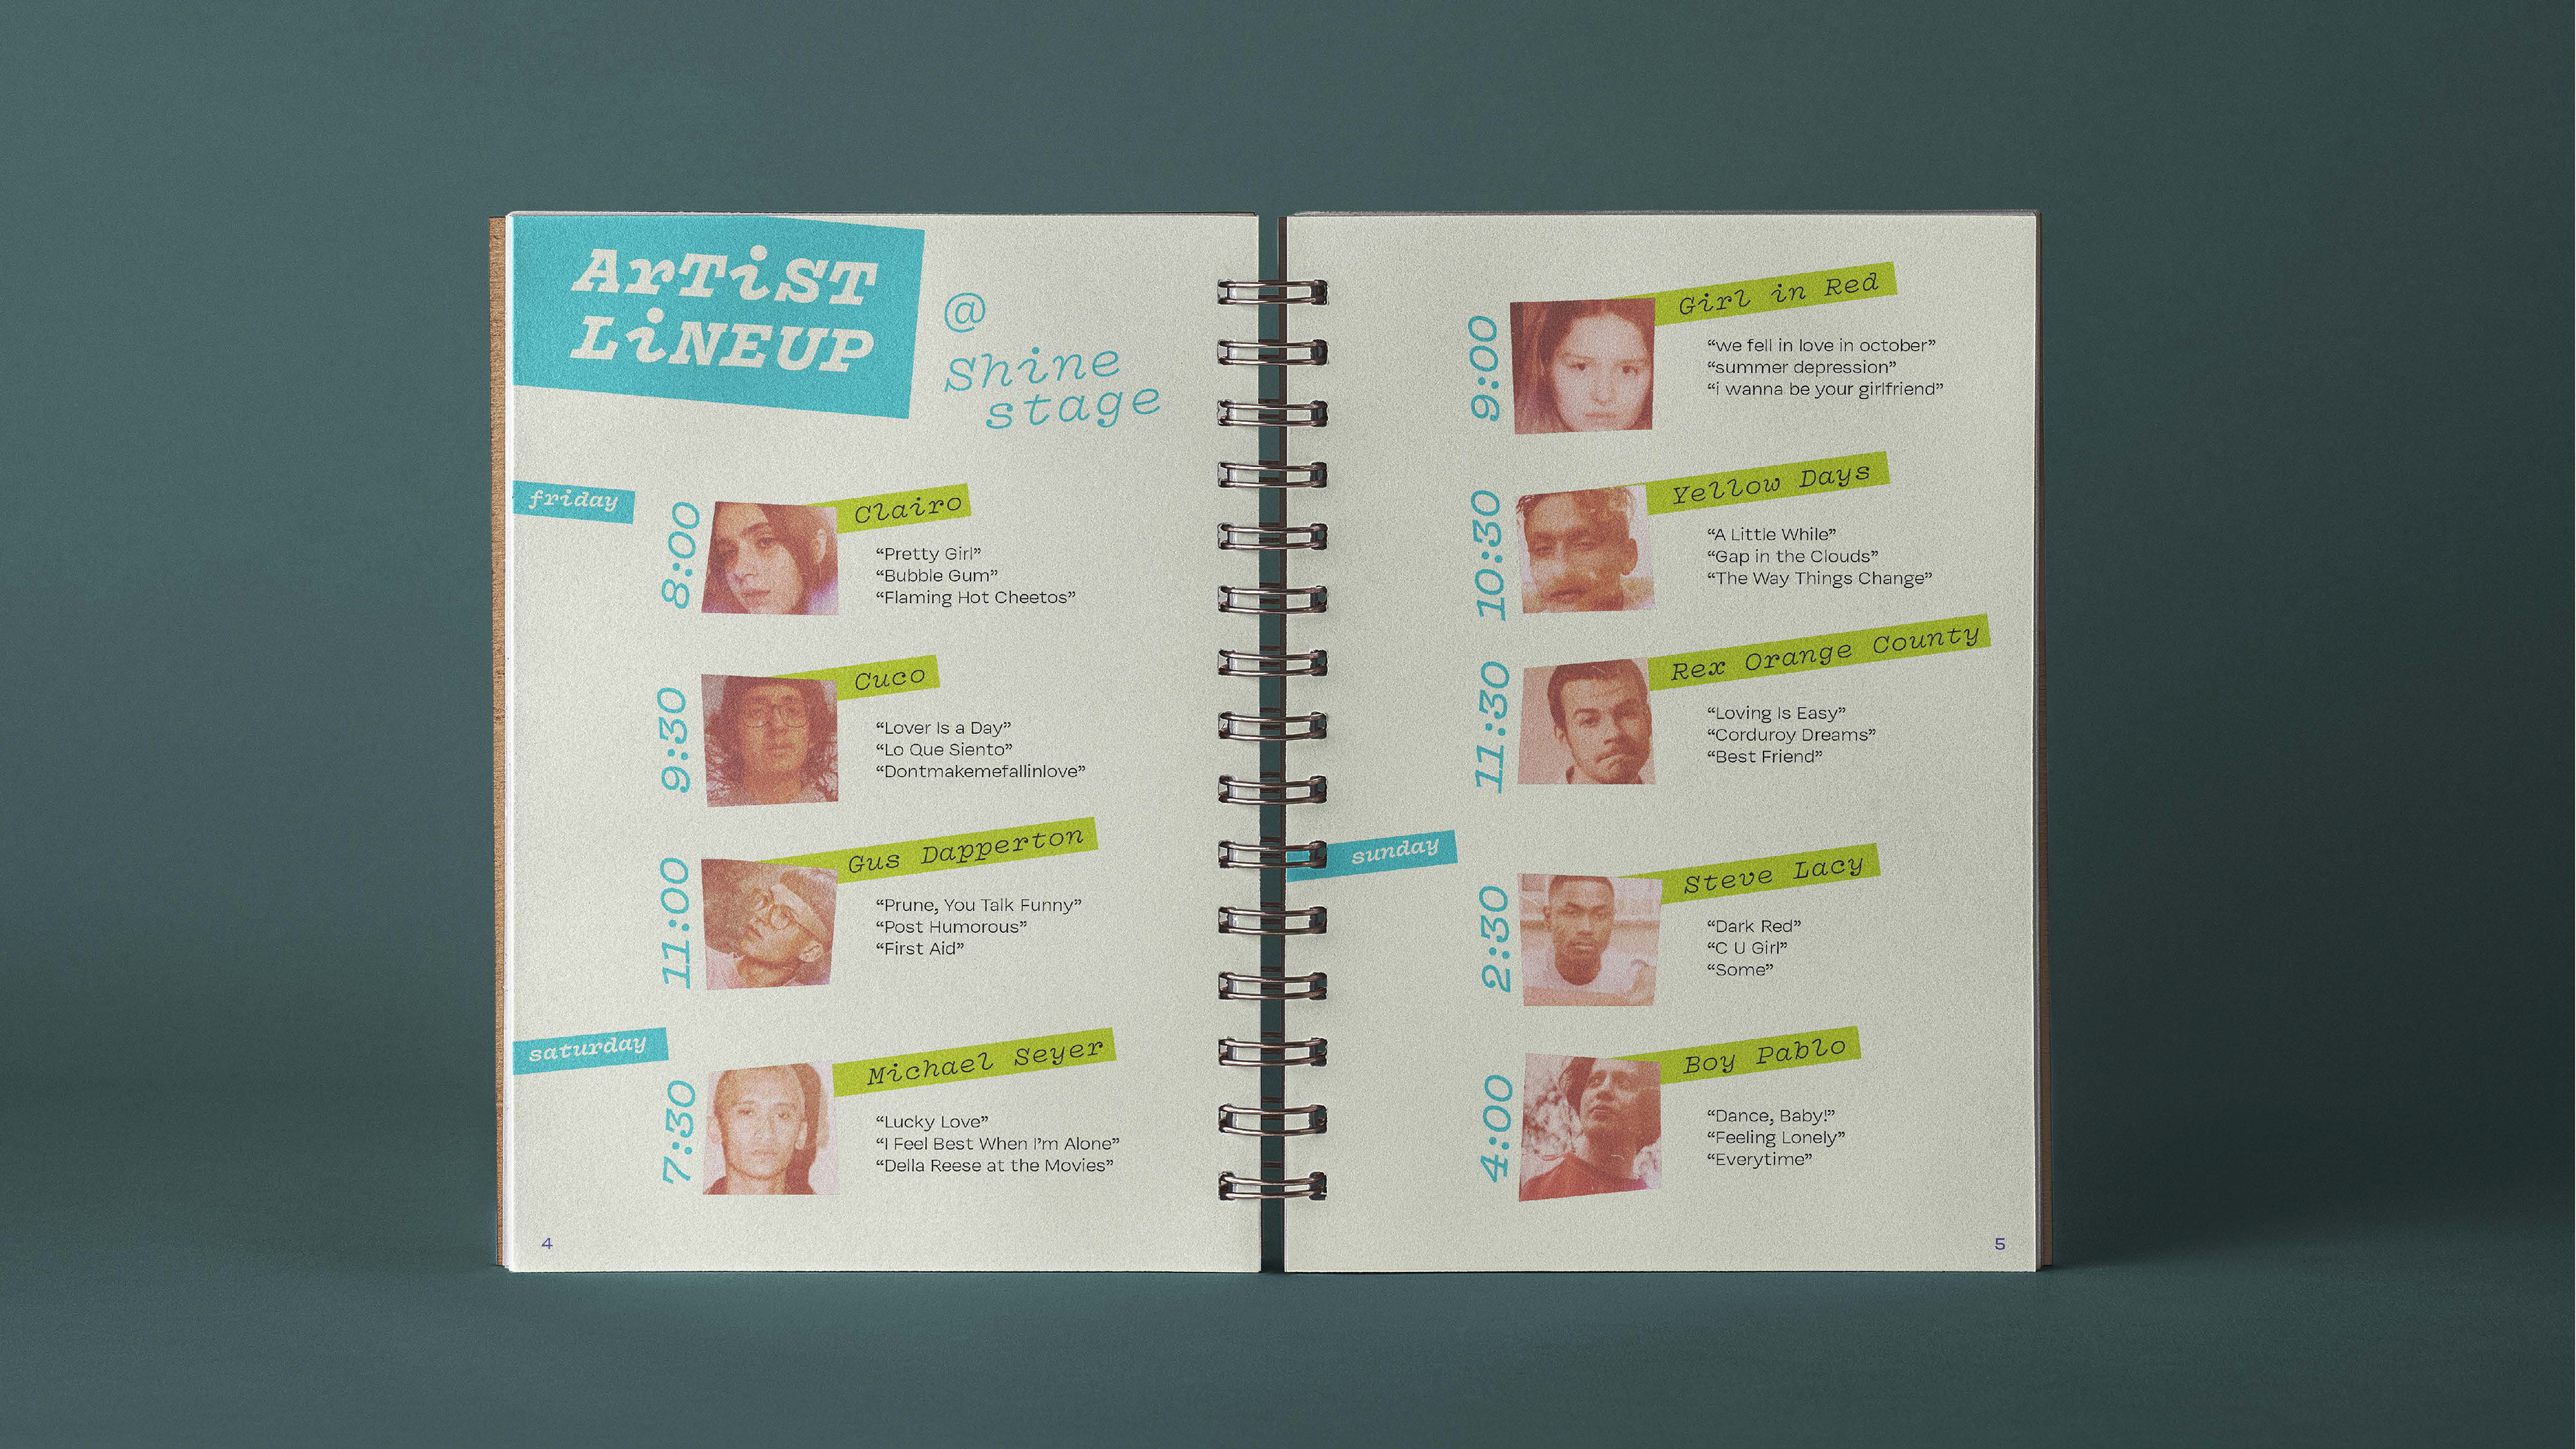 ArTiST
LiNEUP
@
Shine
stage
friday
8:00
Clairo
“Pretty Girl”
“Bubble Gum”
“Flaming Hot Cheetos”
9:30
Cuco
“Lover Is a Day”
“Lo Que Siento”
“Dontmakemefallinlove”
11:00
Gus Dapperton
“Prune, You Talk Funny”
“Post Humorous”
“First Aid”
saturday
7:30
Michael Seyer
“Lucky Love”
“I Feel Best When I’m Alone”
“Della Reese at the Movies”
4
9:00
Girl in Red
“we fell in love in october”
“summer depression”
“i wanna be your girlfriend”
10:30
Yellow Days
“A Little While”
“Gap in the Clouds”
“The Way Things Change”
11:30
Rex Orange County
“Loving Is Easy”
“Corduroy Dreams”
“Best Friend”
sunday
2:30
Steve Lacy
“Dark Red”
“C U Girl”
“Some”
4:00
Boy Pablo
“Dance, Baby!”
“Feeling Lonely”
“Everytime”
5